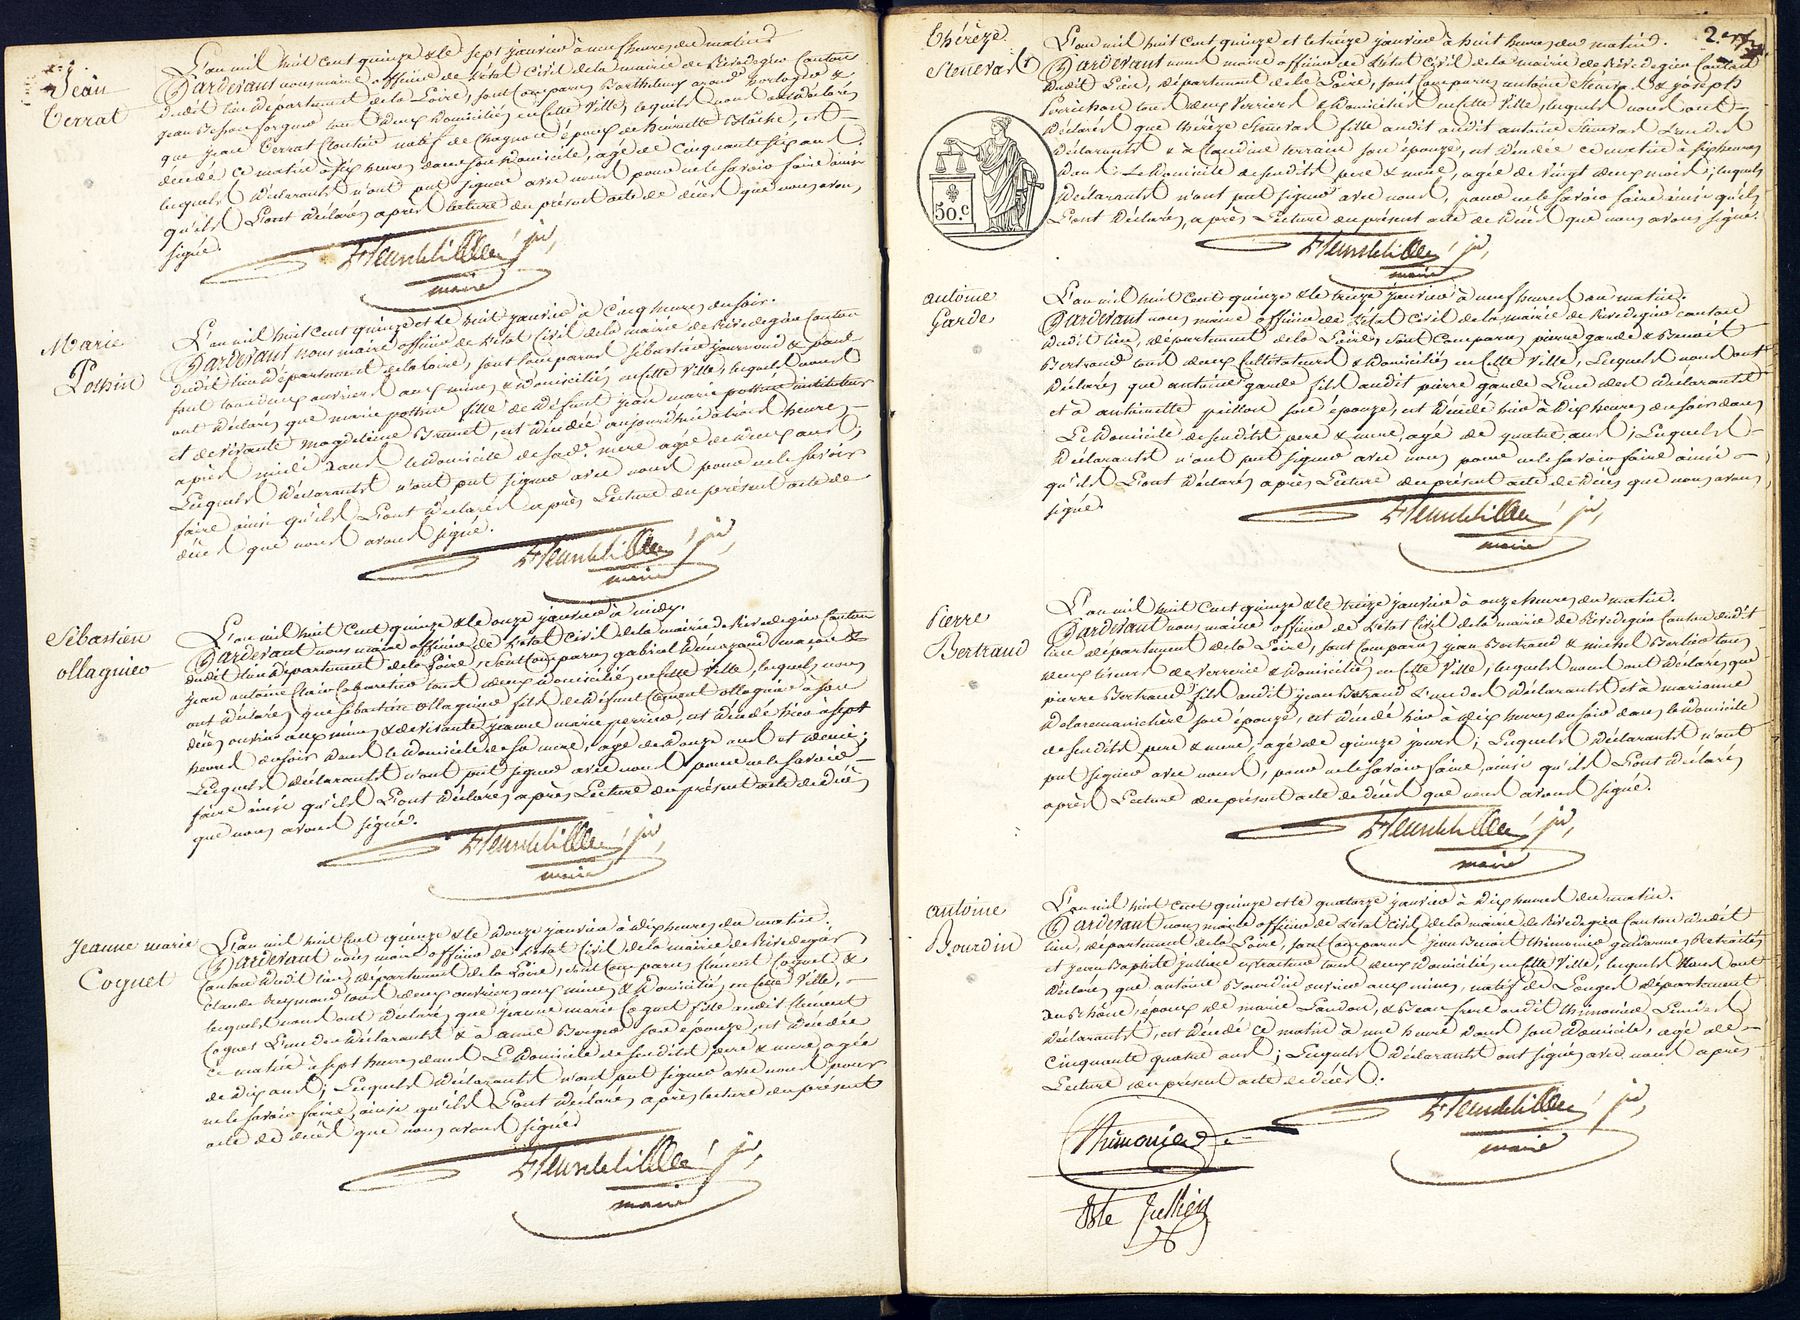 Jean
Terrat
L'an mil huit cent quinze & le sept janvier à neuf heures du matin
Pardevant nous maire officier de l'état civil de la mairie de Rivedegier Canton
dudit lieu département de la Loire, sont comparus Barthelemy horloger &
jean Besson forgeur tous deux domiciliés en cette ville, lesquels nous ont déclarés
que jean Terrat Cloutier natif de Chagnon, époux de Pierrette est
décédé ce matin à six heures dans son domicile, agé de cinquante six ans,
lesquels déclarants n'ont put signer avec nous pour ne le savoir faire ainsi
qu'ils l'ont déclarés après lecture du présent acte de décès que nous avons
signé.
maire
Marie
Pothin
L'an mil huit cent quinze et le huit janvier à cinq heures du soir.
Pardevant nous maire officier de l'état civil de la mairie de Rivedegier Canton
dudit lieu département de la Loire, sont comparus sébastien journoud & paul
font tous deux ouvriers aux mines & domiciliés en cette ville, lesquels nous
ont déclarés que marie pothin fille de défunt jean marie pothin
et de vivante magdeleine Brunet, est décédée aujourd'hui à trois heures
après midi dans le domicile de sad.e mere agée de deux ans;
Lesquels déclarants n'ont put signer avec nous pour ne le savoir
faire ainsi qu'ils l'ont déclarés après lecture du présent acte de
décès que nous avons signé.
maire
Sébastien
ollagnier
L'an mil huit cent quinze & le onze janvier à midy.
Pardevant nous maire officier de l'état civil de la mairie de Rivedegier Canton
dudit lieu département de la Loire, sont comparus gabriel Démarand maçon &
jean antoine Clair Cabaretier tous deux domiciliés en cette ville, lesquels nous
ont déclarés que sébastien ollagnier fils de défunt Clément ollagnier à son
décès ouvrier aux mines & de vivante jeanne marie perrier, est décédé hier à sept
heures du soir dans le domicile de sa mere, agé de onze ans et demie;
Lesquels déclarants n'ont put signer avec nous pour ne le savoir
faire ainsi qu'ils l'ont déclarés après lecture du présent acte de décès
que nous avons signé.
maire
Jeanne marie
Coquet
L'an mil huit cent quinze & le douze janvier à dix heures du matin.
Pardevant nous maire officier de l'état civil de la mairie de Rivedegier
Canton dudit lieu, département de la Loire, sont comparus Clément Coquet &
Claude Reymond tous deux ouvriers aux mines & domiciliés en cette ville,
lesquels nous ont déclarés que jeanne marie Coquet fille audit Clément
Coquet l'un des déclarants & à anne Berger son épouze, est décédée
ce matin à sept heures dans le domicile de sesdits pere & mere, agée
de dix ans; lesquels déclarants n'ont put signer avec nous pour
ne le savoir faire, ainsi qu'ils l'ont déclarés après lecture du présent
acte de décès que nous avons signé
maire
2.
Thérèze
Stenevar
50.C
L'an mil huit cent quinze et le treize janvier à huit heures du matin.
Pardevant nous maire officier de l'état civil de la mairie de Rivedegier Canton
dudit Lieu, département de la Loire, sont comparus antoine Sténévar & joseph
Perrichon tous deux verriers & domiciliés en cette ville, lesquels nous ont
déclarés que thérèze Stenevar fille audit audit antoine Stenevar l'un des
déclarants & à Claudine terraine son épouze, est décédée ce matin à six heures
dans le domicile de sesdits pere & mere, agée de vingt deux mois; lesquels
déclarants n'ont put signer avec nous, pour ne le savoir faire ainsi qu'ils
l'ont déclarés, après Lecture du présent acte de décès que nous avons signé.
maire
antoine
Garde
L'an mil huit cent quinze & le treize janvier à neuf heures du matin.
Pardevant nous maire officier de l'état civil de la mairie de Rivedegier canton
dudit lieu, département de la Loire, sont comparus pierre garde & Benoit
Bertrand tous deux Cultivateurs & domiciliés en cette ville, Lesquels nous ont
déclarés que antoine garde fils audit pierre garde l'un des déclarants
et à antoinette peillon son épouze, est décédé hier à dix heures du soir dans
Le domicile de sesdits pere & mere, agé de quatre ans; Lesquels
déclarants n'ont put signer avec nous pour ne le savoir faire ainsi
qu'ils l'ont déclarés après Lecture du présent acte de décès que nous avons
signé.
maire
Pierre
Bertrand
L'an mil huit cent quinze & le treize janvier à onze heures du matin.
Pardevant nous maire officier de l'état civil de la mairie de Rivedegier Canton dudit
lieu département de la Loire, sont comparus jean Bertrand & michel Berlier tous
deux tiseurs de verrerie & domiciliés en cette ville, lesquels nous ont déclarés que
pierre Bertrand fils audit jean Bertrand l'un des déclarants et à marianne
son épouze, est décédé hier à dix heures du soir dans le domicile
de sesdits pere & mere, agé de quinze jours; Lesquels déclarants n'ont
put signer avec nous, pour ne le savoir faire, ainsi qu'ils l'ont déclarés
après Lecture du présent acte de décès que nous avons signé.
maire
antoine
Bourdin
L'an mil huit cent quinze et le quatorze janvier à dix heures du matin.
Pardevant nous maire officier de l'état civil de la mairie de Rivedegier Canton dudit
lieu, département de la Loire, sont comparus jean Benoit thimonier gendarme Retraité
et jean Baptiste jullien extracteur tous deux domiciliés en cette ville, lesquels nous ont
déclarés que antoine Bourdin ouvrier aux mines, natif de Longes département
du Rhône, époux de marie Landon, & Beau frere audit thimonier l'un des
déclarants, est décédé ce matin à une heure dans son domicile, agé de
cinquante quatre ans; Lesquels déclarants ont signés avec nous après
Lecture du présent acte de décès.
Thimonier
maire
Bte Jullien